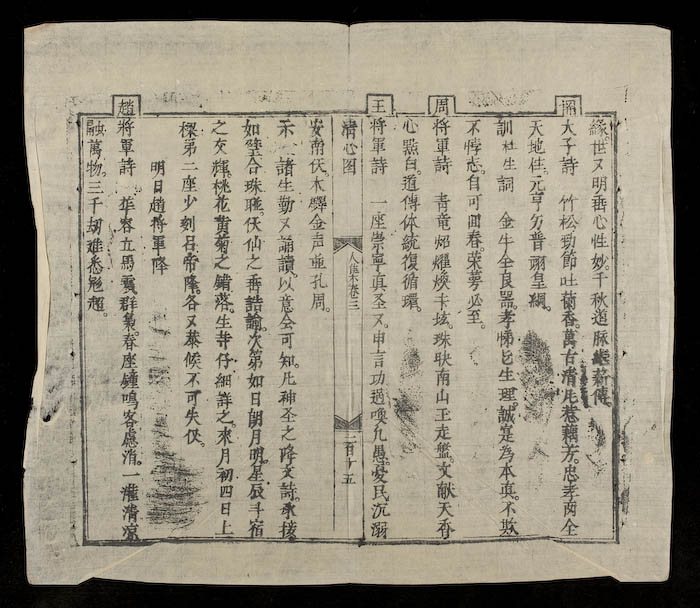 緣世又明垂心性妙。千秋道脉繼薪傳
太子詩 竹松勁節吐蘭香。萬古清巷藕芳。忠孝兩全
天地佳。元亨普詡皇綱。
訓杜生詞 金牛全良器孝悌皆生理。誠寔為本真。不欺
不悖志。自可回春。榮夢必至。
周 將軍詩 青竜炤耀煥卡炫。珠映南山王走盤。文献天香
心點白。道傳体統復循環。
王 將軍詩 一座崇寧真圣又。申言功過喚凢愚。憂民沉溺
清心图 人集卷三 二百十五
安南伏。木驛金声並孔周。
示 諸生勤又誦讀。以意会可知。凡神圣之降文詩。承接
如壁合珠聯。伏仙之垂誥諭。次第如日朗月明。星辰斗宿
之交輝。桃花黃菊之錯落。生等仔細詳之。來月初四日上
樑第二座少刻呂帝降。各又恭候不可失仪。
明日趙將軍降
趙 將軍詩 華容立馬震群梟。春座鍾鳴客慮消。一灌清凉
融萬物。三千刼进悉勉超。